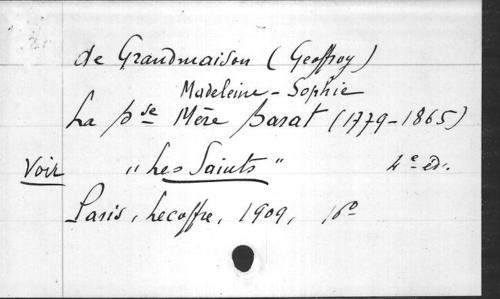 de Grandmaison (Geoffroy)
Madeleine-Sophie
La Bse Mère Barat (1779-1865)
Voir "Les Saints" 4e éd.
Paris, Lecoffre, 1909, 16o